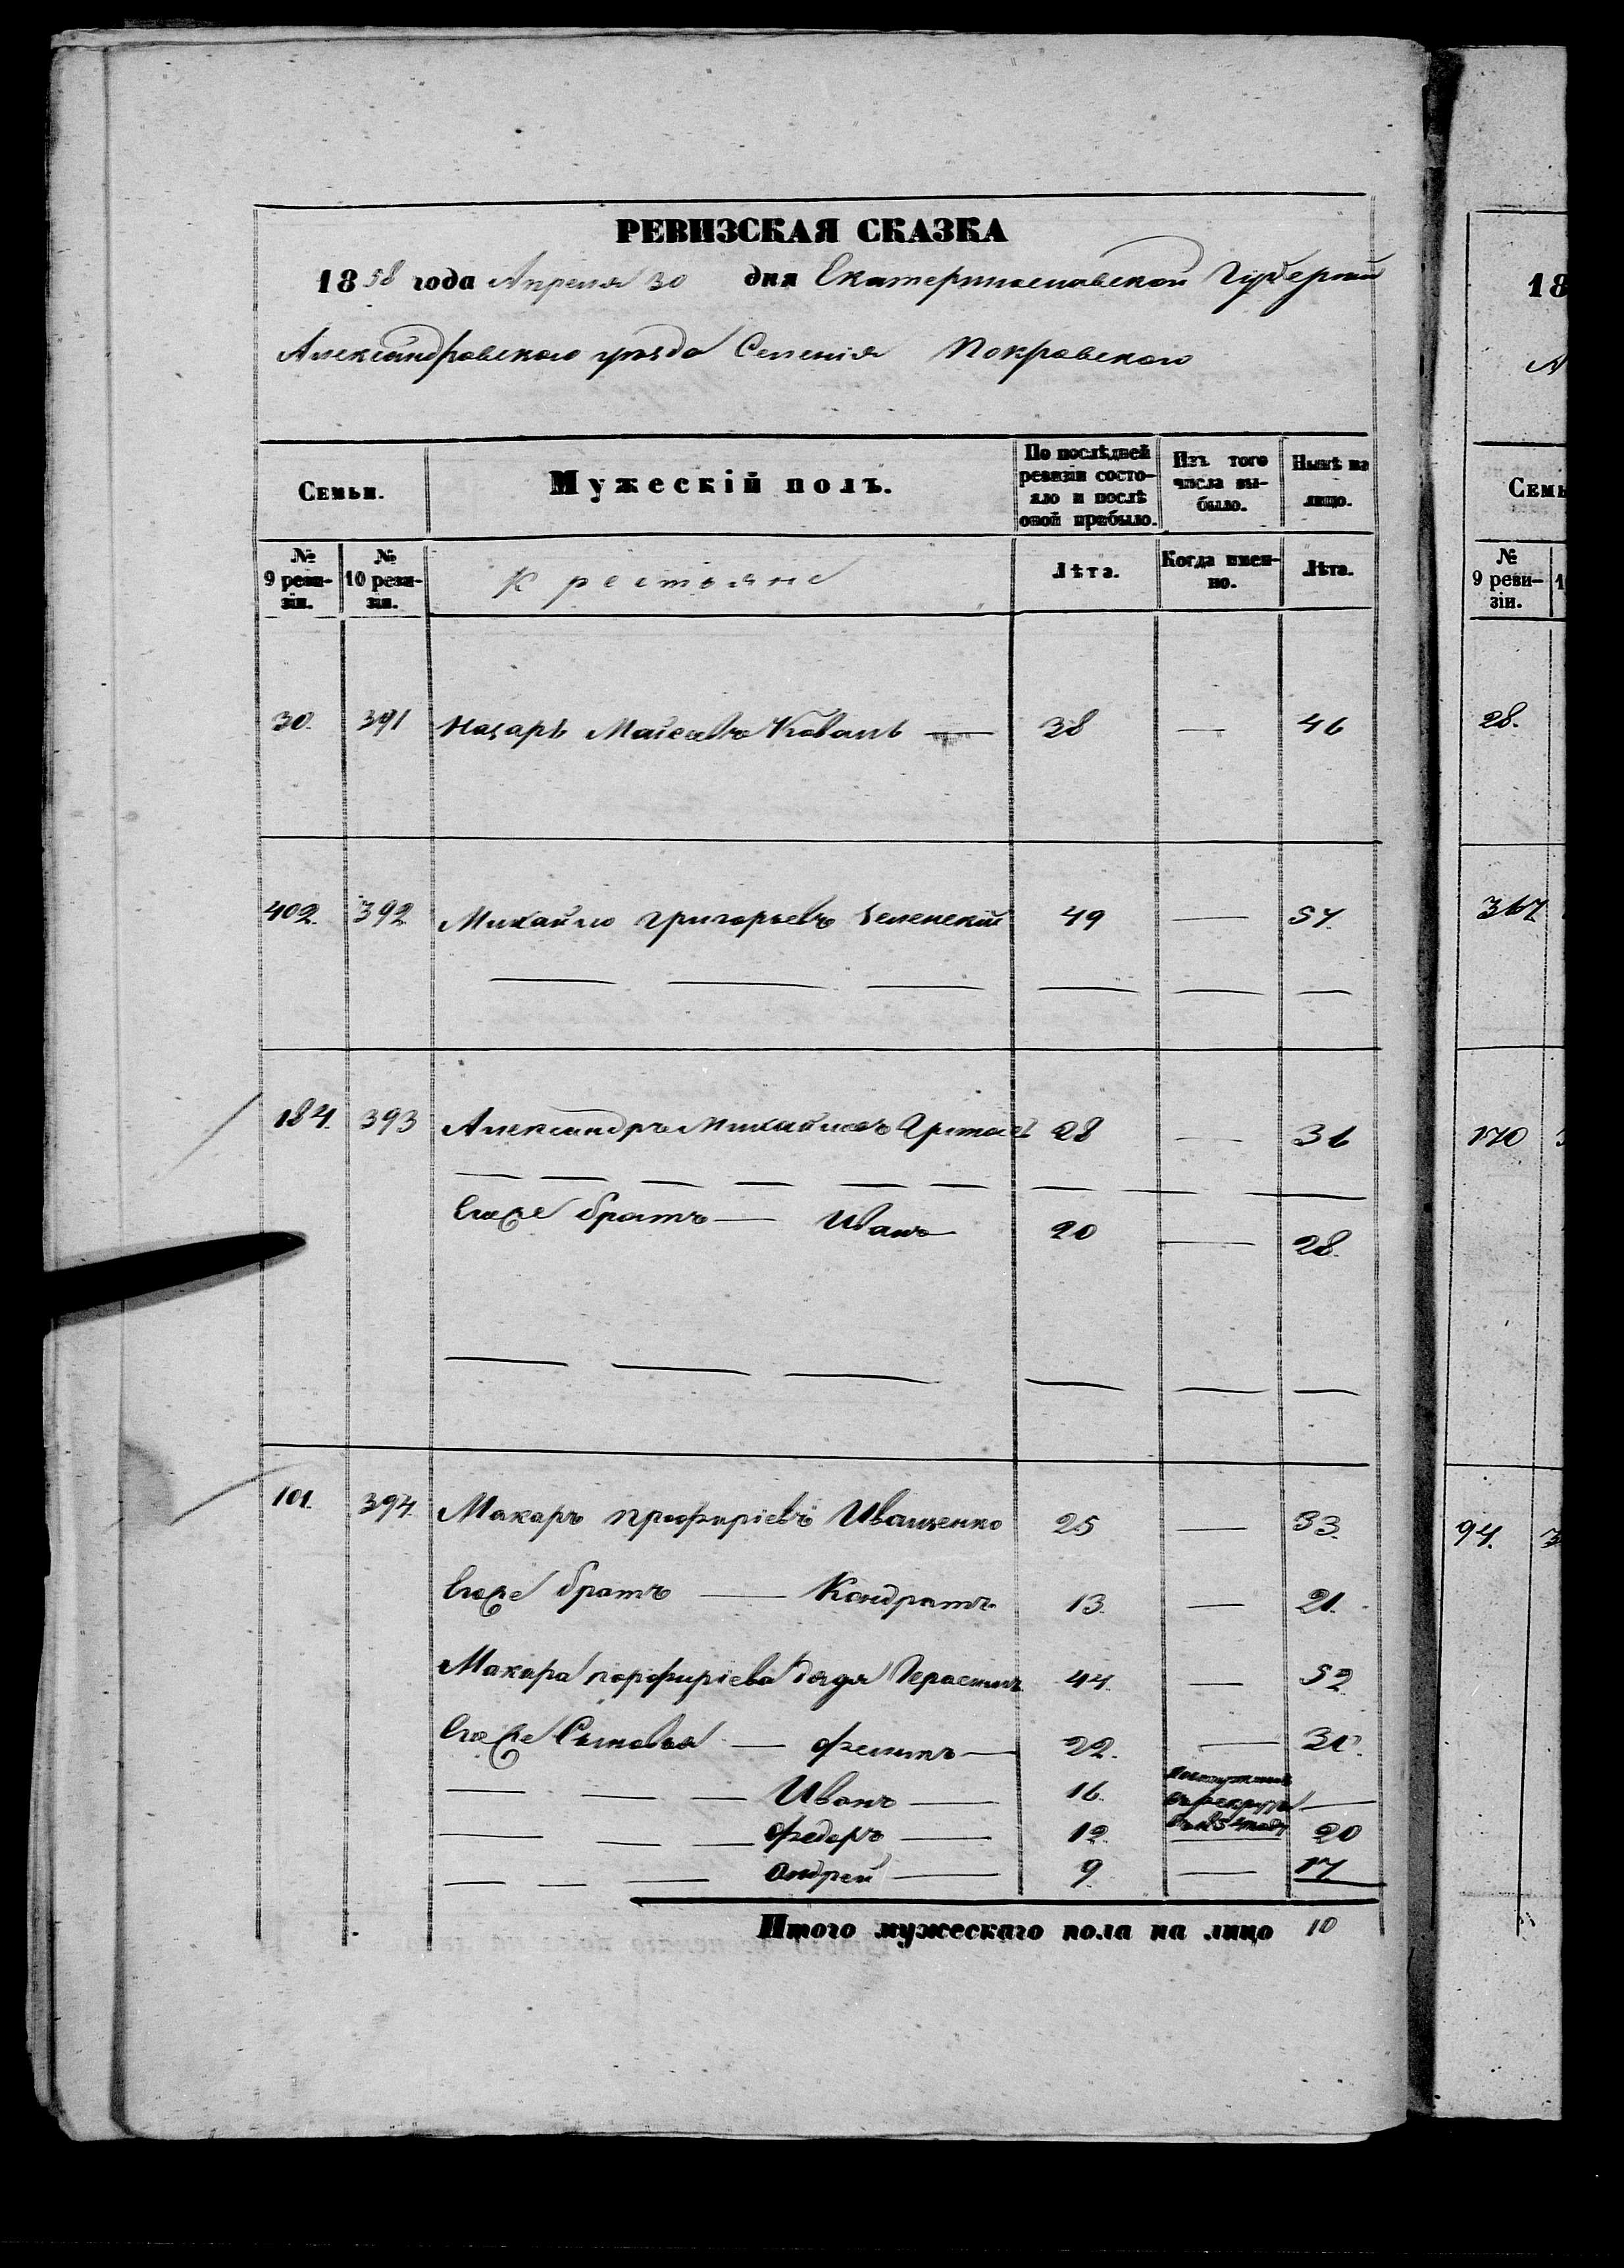 РЕВИЗСКАЯ СКАЗКА
1858 года Апреля 30 дня Екатеринославской Губернии
Александровского уезда Селенія Покровского
Семьи.
Мужескій полъ.
По послѣдней ревизіи состояло и послѣ оной прибыло.
Изъ того числа выбыло.
Нынѣ на лицо.
№ 9 ревизіи.
№ 10 ревизіи.
Крестьяне
Лѣта.
Когда именно.
Лѣта.
30. 391 Назаръ Маісеевъ Коваль — 38 — 46
402. 392 Михайло Григорьевъ Зеленскій 49 — 57.
184. 393 Александръ Михайловъ 28 — 36
Егоже братъ — Иванъ 20 — 28.
101. 394. Макаръ Профиріевъ Иващенко 25 — 33.
Егоже братъ — Кондратъ 13. — 21.
Макара Порфиріева дядя Герасимъ 44. — 52.
Егоже Сыновья — Филипъ — 22. — 30.
Иванъ — 16. —
Федоръ — 12. 20
Андрей — 9. — 17
Итого мужескаго пола на лицо 10
18
А
Семь
№ 9 ревизіи.
28.
367
170
94.